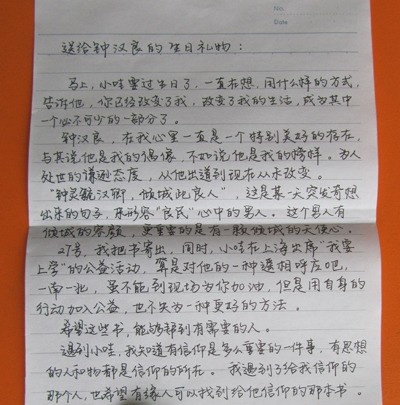 No.
Date
送给钟汉良的生日礼物：
马上，小哇要过生日了，一直在想，用什么样的方式，
告诉他，你已经改变了我，改变了我的生活，成为其中
一个必不可少的一部分了。
钟汉良，在我心里一直是一个特别美好的存在，
与其说他是我的偶像，不如说他是我的榜样。为人
处世的谦逊态度，从他出道到现在从未改变。
“钟灵毓汉卿，倾城此良人”，这是某一天突发奇想
出来的句子，来形容“良民”心中的男人。这个男人有
倾城的容颜，更重要的是有一颗倾城的天使心。
27号，我把书寄出，同时，小哇在上海出席“我要
上学”的公益活动，算是对他的一种遥相呼应吧，
一南一北，虽不能到现场为你加油，但是用自身的
行动加入公益，也不失为一种更好的方法。
希望这些书，能够帮到有需要的人。
遇到小哇，我知道有信仰是多么重要的一件事，有思想
的人和物都是信仰的所在。我遇到了给我信仰的
那个人，也希望有缘人可以找到给他信仰的那本书。